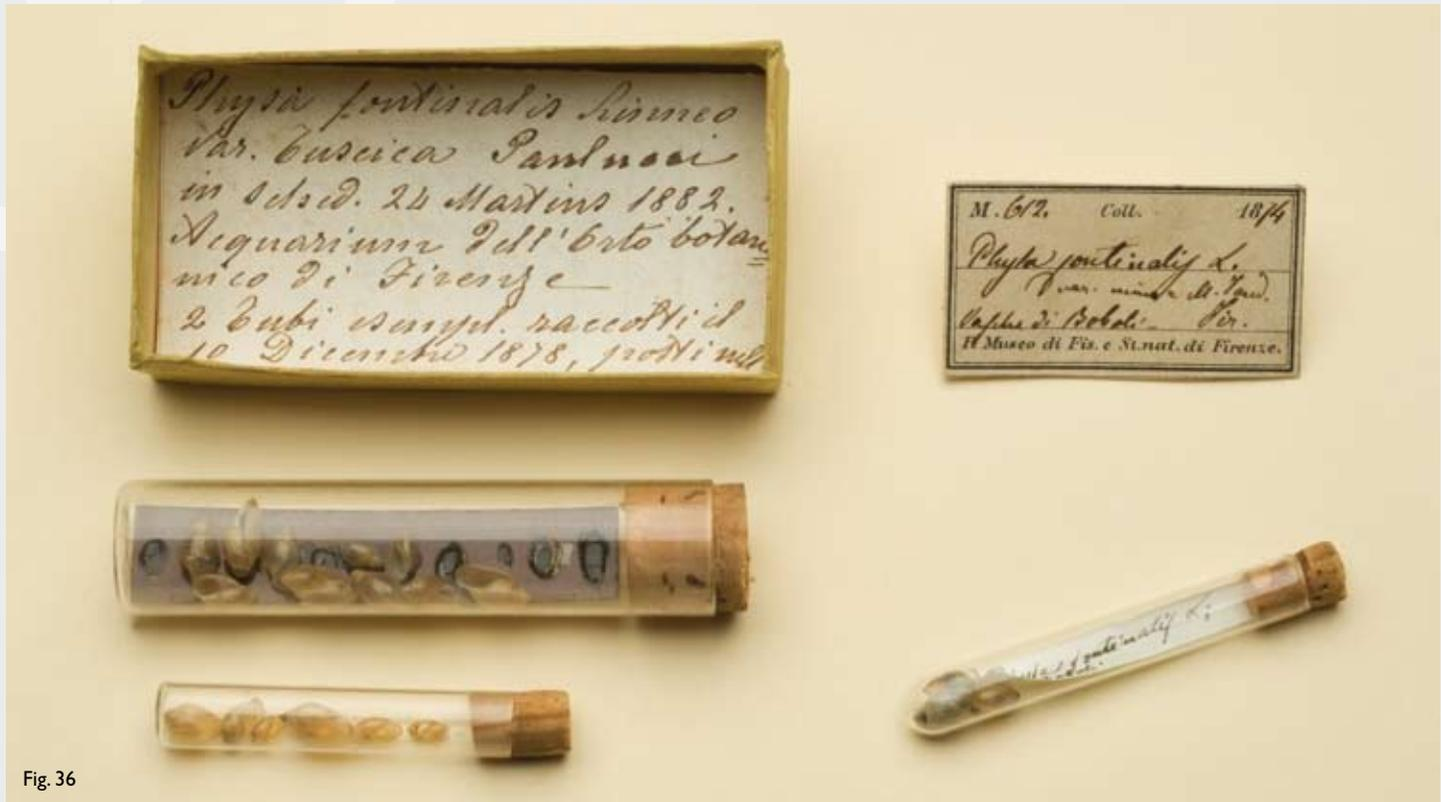 Physa fontinalis Linneo
Var. Tuscica Paulucci
in sched. 24 Martins 1882.
Acquarium dell'Orto botan=
nico di Firenze
2 Tubi esempl. raccolti il
10 Dicembre 1878, posti nell
M. 612. Coll. 1874
Physa fontinalis L.
var. minor M. Tand.
Vasche di Boboli - Fir.
R. Museo di Fis. e St. nat. di Firenze.
fontinalis L.
Fig. 36